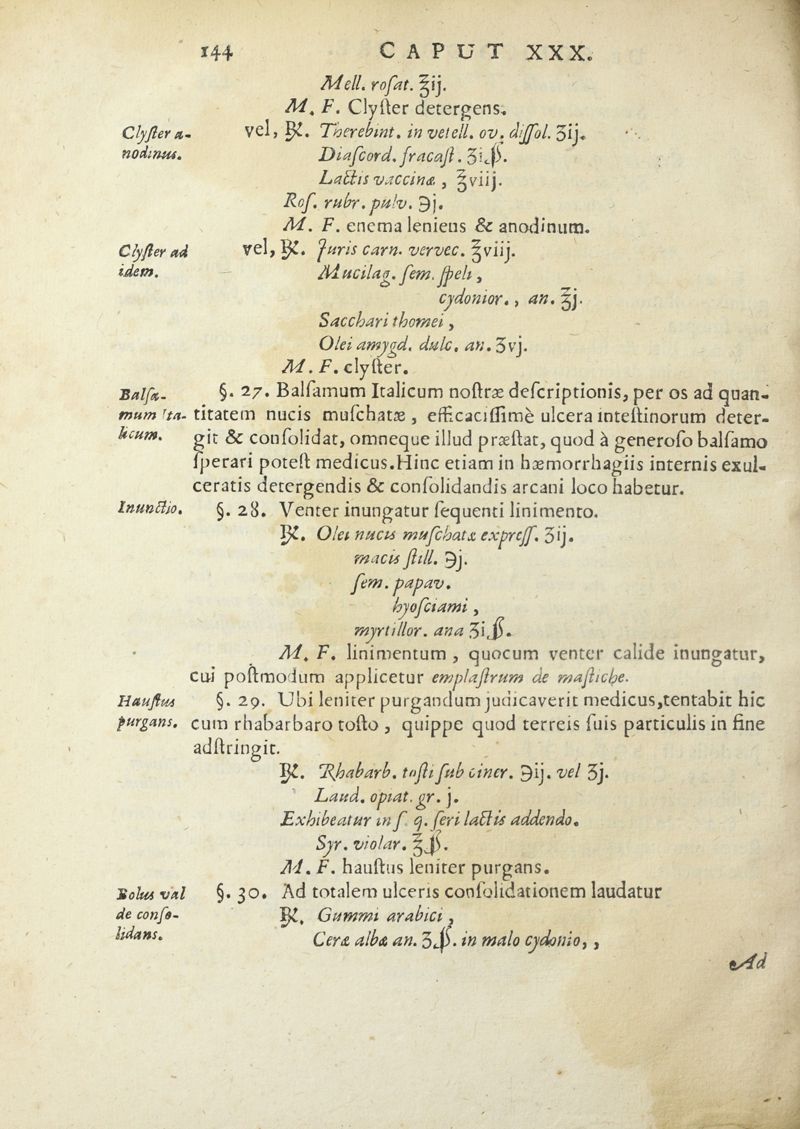 144 CAPUT XXX.
Mell. rosat. ℥ij.
M. F. Clyster detergens.
Clyster a-
nodinus.
vel, ℞. Therebint. in vetell. ov. dissol. ʒij.
Diascord. fracast. ʒiſs.
Lactis vaccinæ, ℥viij.
Ros. rubr. pulv. ℈j.
M. F. enema leniens & anodinum.
Clyster ad
idem.
vel, ℞. Juris carn. vervec. ℥viij.
Mucilag. sem. psyli,
cydonior., an. ℥j.
Sacchari thomei,
Olei amygd. dulc. an. ʒvj.
M. F. clyster.
Balsa-
mum Ita-
licum.
§. 27. Balsamum Italicum nostræ descriptionis, per os ad quan-
titatem nucis muschatæ, efficacissimè ulcera intestinorum deter-
git & consolidat, omneque illud præstat, quod à generoso balsamo
sperari potest medicus. Hinc etiam in hæmorrhagiis internis exul-
ceratis detergendis & consolidandis arcani loco habetur.
Inunctio.
§. 28. Venter inungatur sequenti linimento.
℞. Olei nucis muschatæ express. ʒij.
macis still. ℈j.
sem. papav.
hyosciami,
myrtillor. ana ʒiſs.
M. F. linimentum, quocum venter calide inungatur,
cui postmodum applicetur emplastrum de mastiche.
Haustus
purgans.
§. 29. Ubi leniter purgandum judicaverit medicus, tentabit hic
cum rhabarbaro tosto, quippe quod terreis suis particulis in fine
adstringit.
℞. Rhabarb. tosti sub ciner. ℈ij. vel ʒj.
Laud. opiat. gr. j.
Exhibeatur in s. q. seri lactis addendo.
Syr. violar. ℥ſs.
M. F. haustus leniter purgans.
Bolus val
de conso-
lidans.
§. 30. Ad totalem ulceris consolidationem laudatur
℞. Gummi arabici,
Ceræ albæ an. ʒſs. in malo cydonio,,
Ad